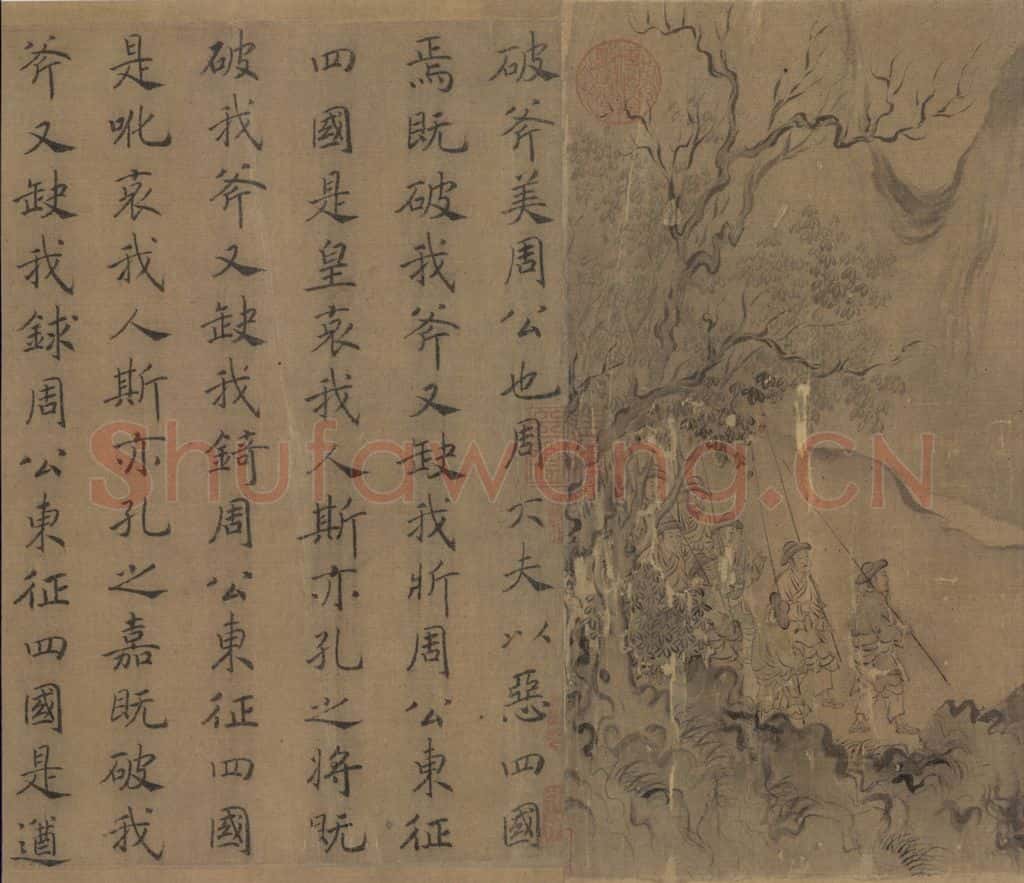 破斧美周公也周大夫以惡四國
焉既破我斧又缺我斨周公東征
四國是皇哀我人斯亦孔之將既
破我斧又缺我錡周公東征四國
是吪哀我人斯亦孔之嘉既破我
斧又缺我銶周公東征四國是遒
Shufawang.CN